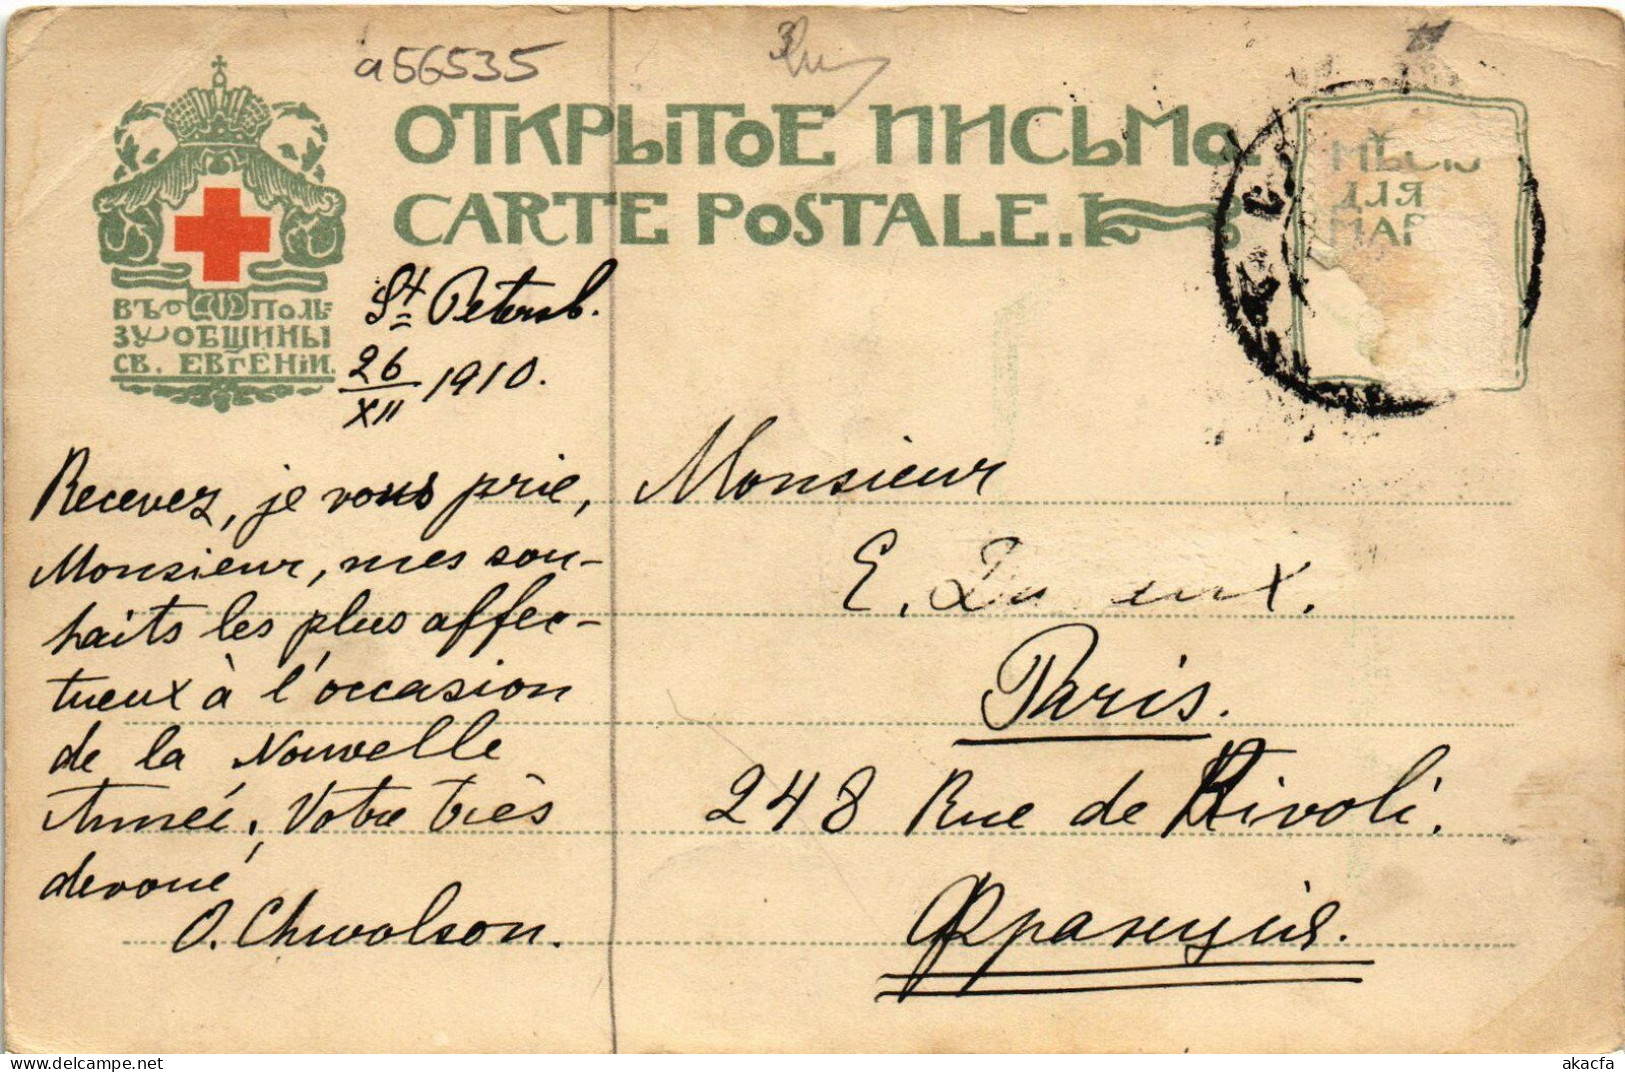 a56535
ОТКРЫТОЕ ПИСЬМО.
CARTE POSTALE.
МѢСТО
ДЛЯ
МАР
ВЪ ПОЛЬ-
ЗУ ОБЩИНЫ
СВ. ЕВГЕНІИ.
St Petersb.
26/XII 1910.
Recevez, je vous prie,
Monsieur, mes sou-
haits les plus affec-
tueux à l'occasion
de la Nouvelle
Année. Votre très
dévoué
O. Chwolson.
Monsieur
E.
Paris.
248 Rue de Rivoli.
Франція.
akacfa